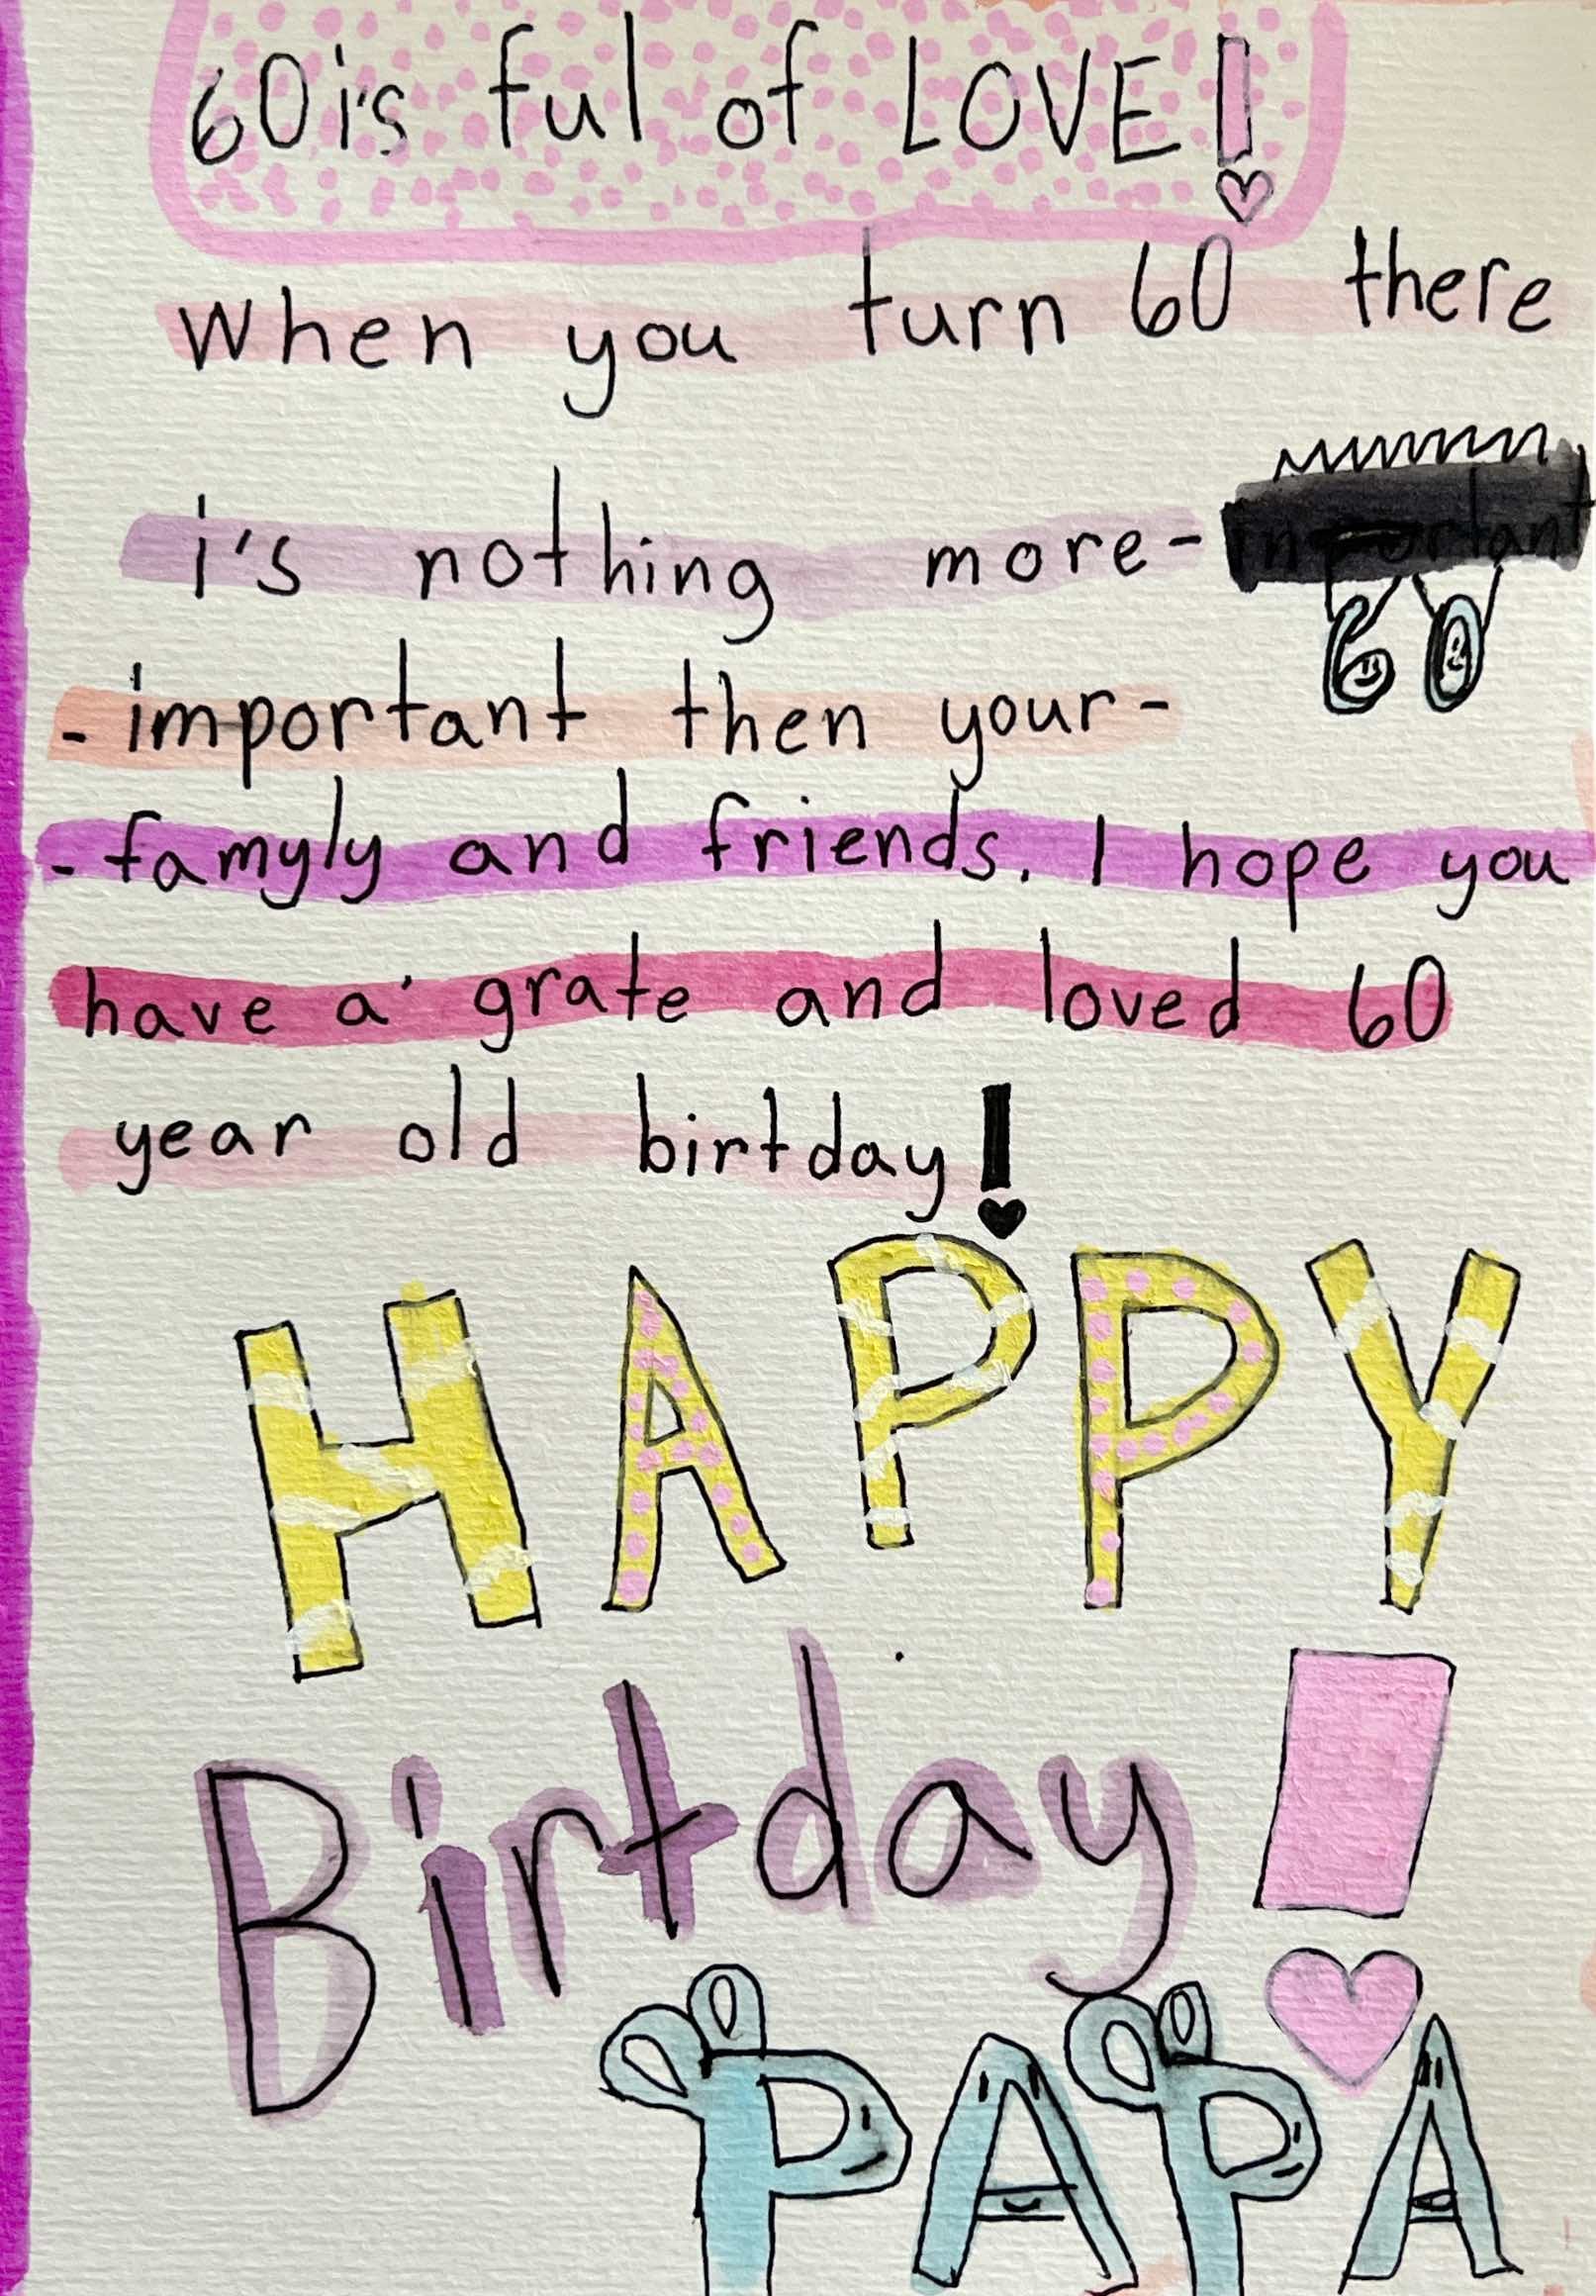 60 i's ful of LOVE!
When you turn 60 there
i's nothing more-
60
-important then your-
-famyly and friends. I hope you
have a' grate and loved 60
year old birtday!
HAPPY
Birtday!
PAPA